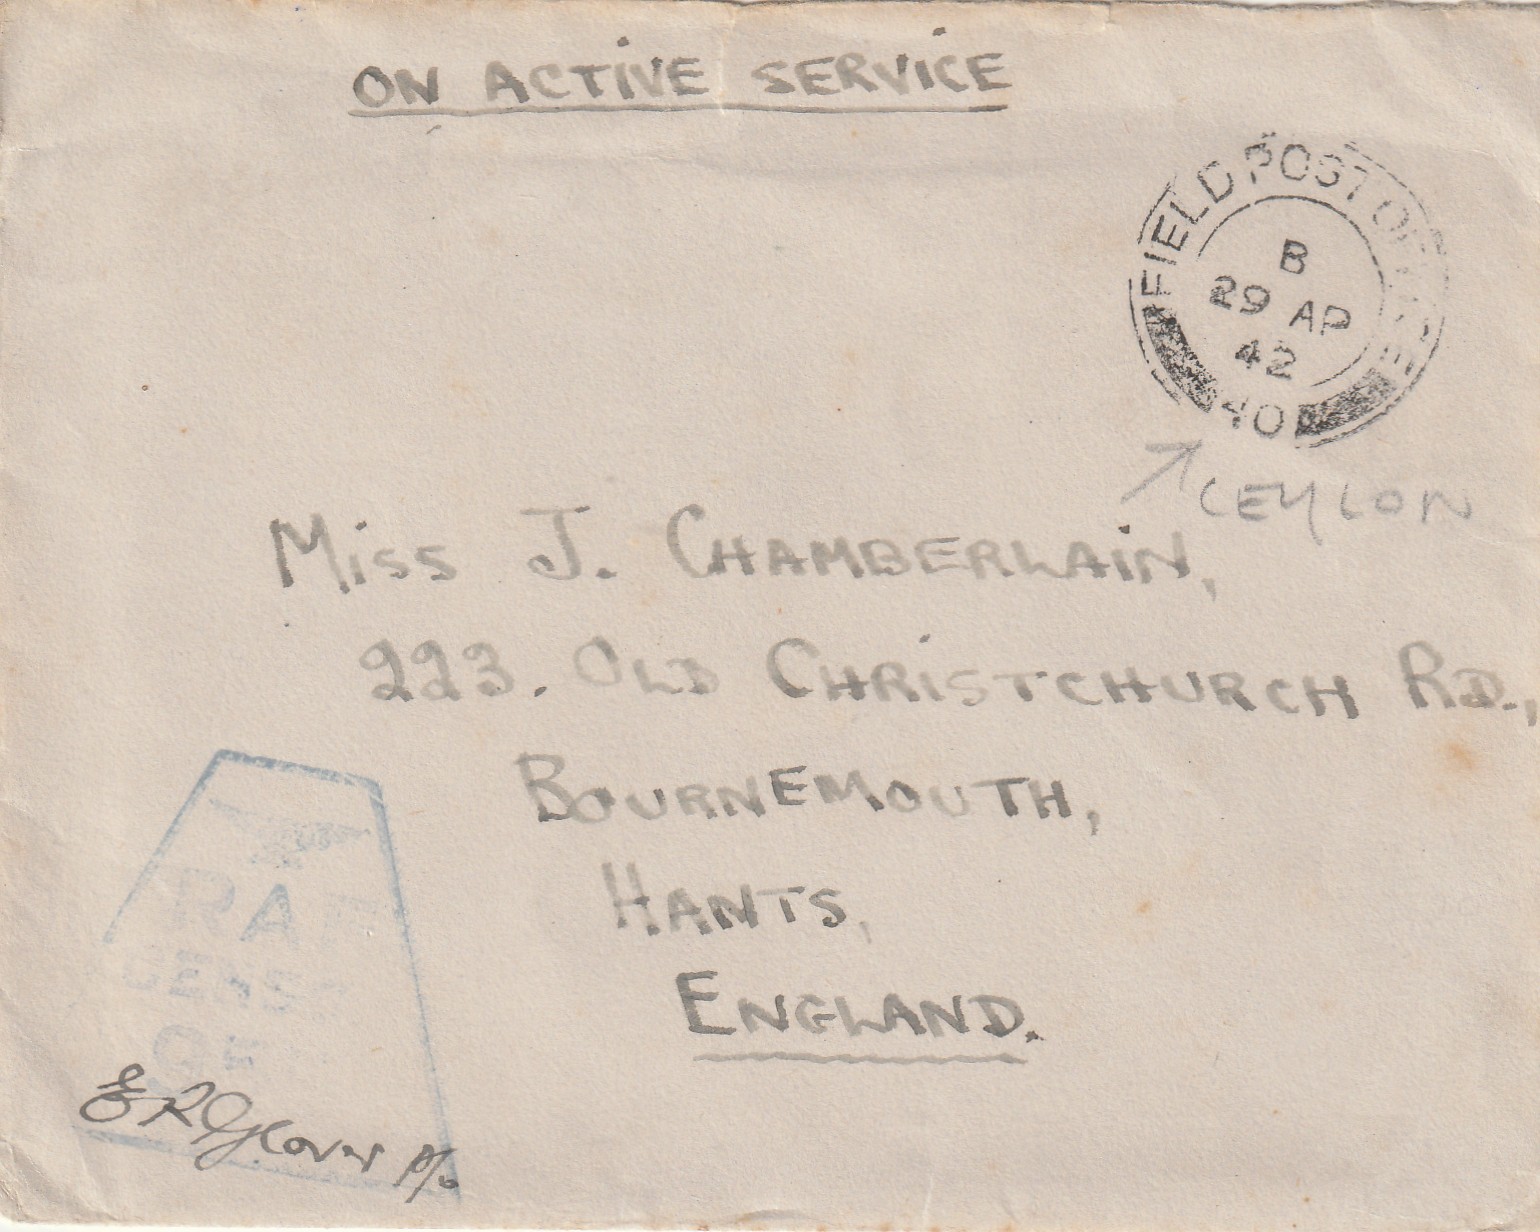 ON ACTIVE SERVICE
FIELD POST OFFICE
B
29 AP
42
40
CEYLON
Miss J. CHAMBERLAIN,
223. OLD CHRISTCHURCH RD.,
BOURNEMOUTH,
HANTS,
ENGLAND.
RAF
CENSOR
E R Glover P/o